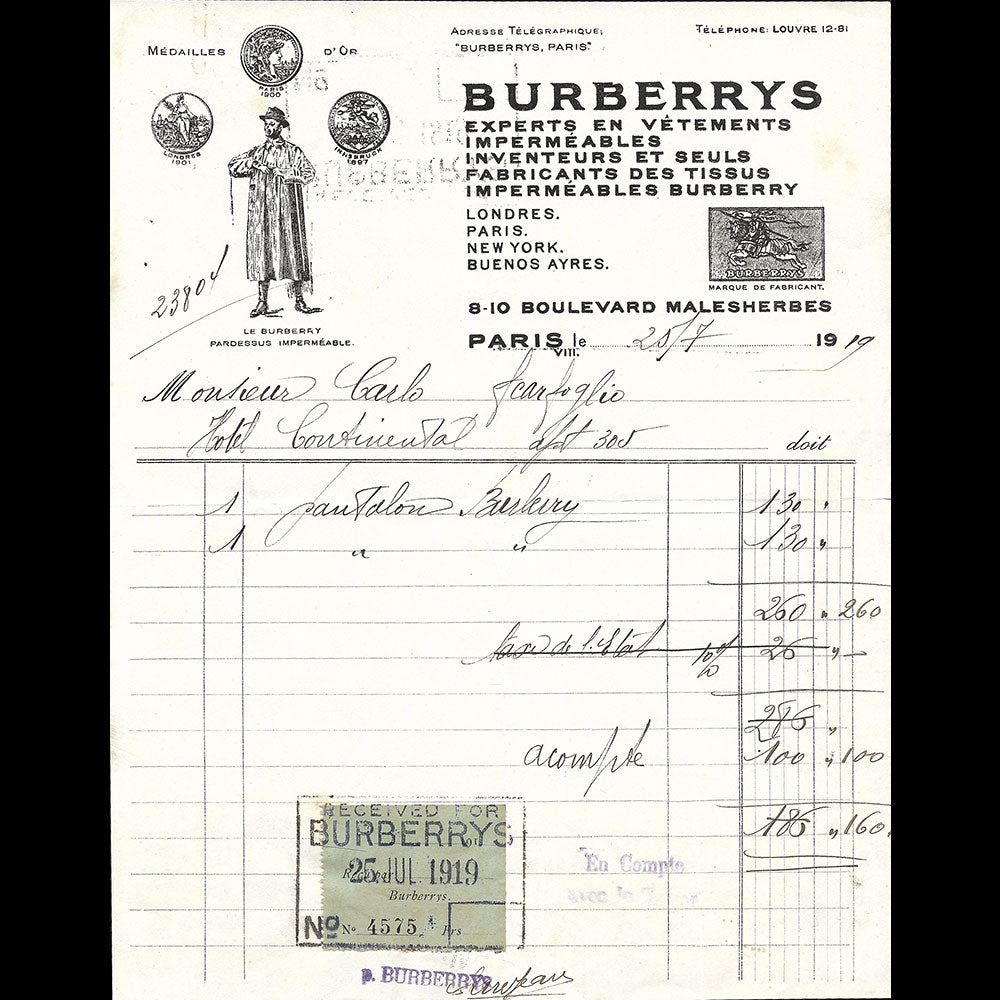 MÉDAILLES D'OR
PARIS 1900
LONDRES 1901
INNSBRUCK 1897
ADRESSE TÉLÉGRAPHIQUE;
"BURBERRYS, PARIS"
TÉLÉPHONE: LOUVRE 12-81
BURBERRYS
EXPERTS EN VÊTEMENTS
IMPERMÉABLES
INVENTEURS ET SEULS
FABRICANTS DES TISSUS
IMPERMÉABLES BURBERRY
LONDRES.
PARIS.
NEW YORK.
BUENOS AYRES.
BURBERRYS
MARQUE DE FABRICANT.
23804
LE BURBERRY
PARDESSUS IMPERMÉABLE.
8-10 BOULEVARD MALESHERBES
PARIS VIII. le 25/7 1919
Monsieur Carlo Scarfoglio
Hotel Continental apt 305 doit
1 pantalon Burberry 130 "
1 " " 130 "
260 " 260
taxe de l'Etat 10% 26 " —
286 "
acompte 100 " 100
186 " 160
RECEIVED FOR
BURBERRYS
25 JUL 1919
Burberrys.
No No 4575 Frs
En Compte
avec le
p. BURBERRYS